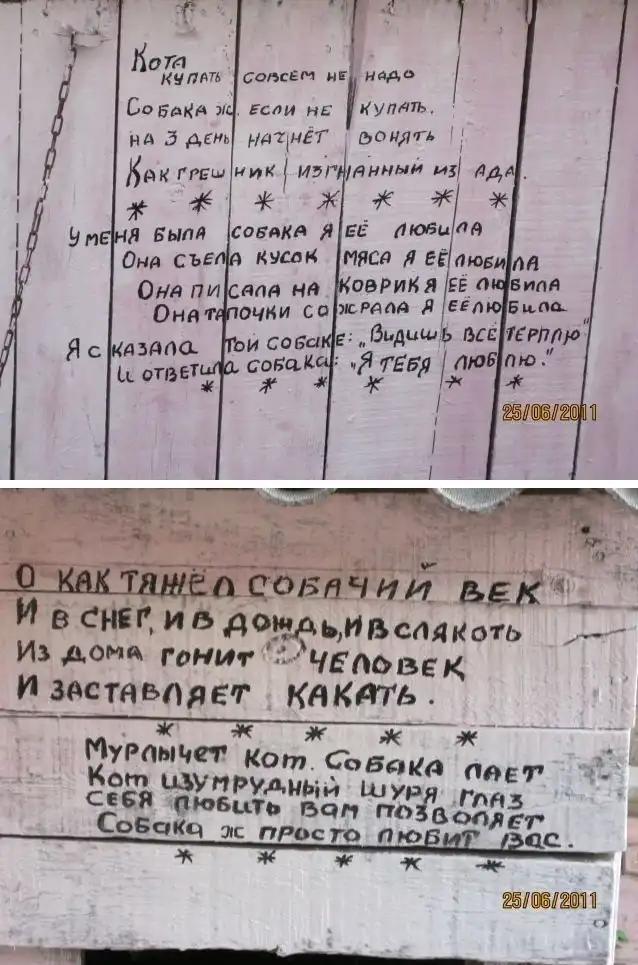 Кота
купать совсем не надо
Собака ж. если не купать.
на 3 день начнёт вонять
Как грешник изгнанный из ада.
* * * * * *
У меня была собака я её любила
Она съела кусок мяса я её любила
Она писала на коврик я её любила
Она тапочки сожрала я её любила
Я сказала той собаке: „Видишь всё терплю"
и ответила собака: „Я тебя люблю."
* * * * * *
25/06/2011
О как тяжёл собачий век
И в снег, и в дождь, и в слякоть
Из дома гонит человек
И заставляет какать.
* * * * *
Мурлычет кот. Собака лает
Кот изумрудный щуря глаз
себя любить вам позволяет
Собака ж просто любит вас.
* * * * *
25/06/2011